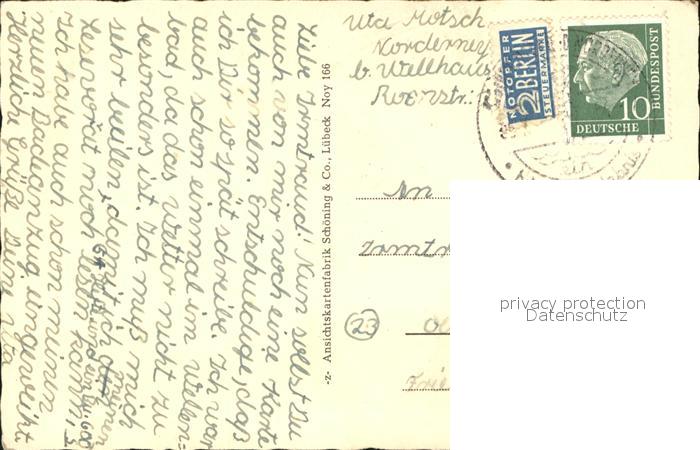 Liebe Irmtraud! Nun sollst Du
auch von mir noch eine Karte
bekommen. Entschuldige, daß
ich Dir so spät schreibe. Ich war
auch schon einmal im Wellen=
bad, da das Wetter nicht zu
besonders ist. Ich muß mich
sehr beeilen, damit ich meinen
Lesevorat noch lesen kann.
Ich habe auch schon meinen
neuen Badeanzug eingeweiht.
Herzliche Grüße Deine Uta
-z- Ansichtskartenfabrik Schöning & Co., Lübeck Noy 166
Uta Motsch
Norderney
b. Wellhaus
NOTOPFER
2 BERLIN
STEUERMARKE
10
DEUTSCHE
BUNDESPOST
An
Irmtr
23
privacy protection
Datenschutz